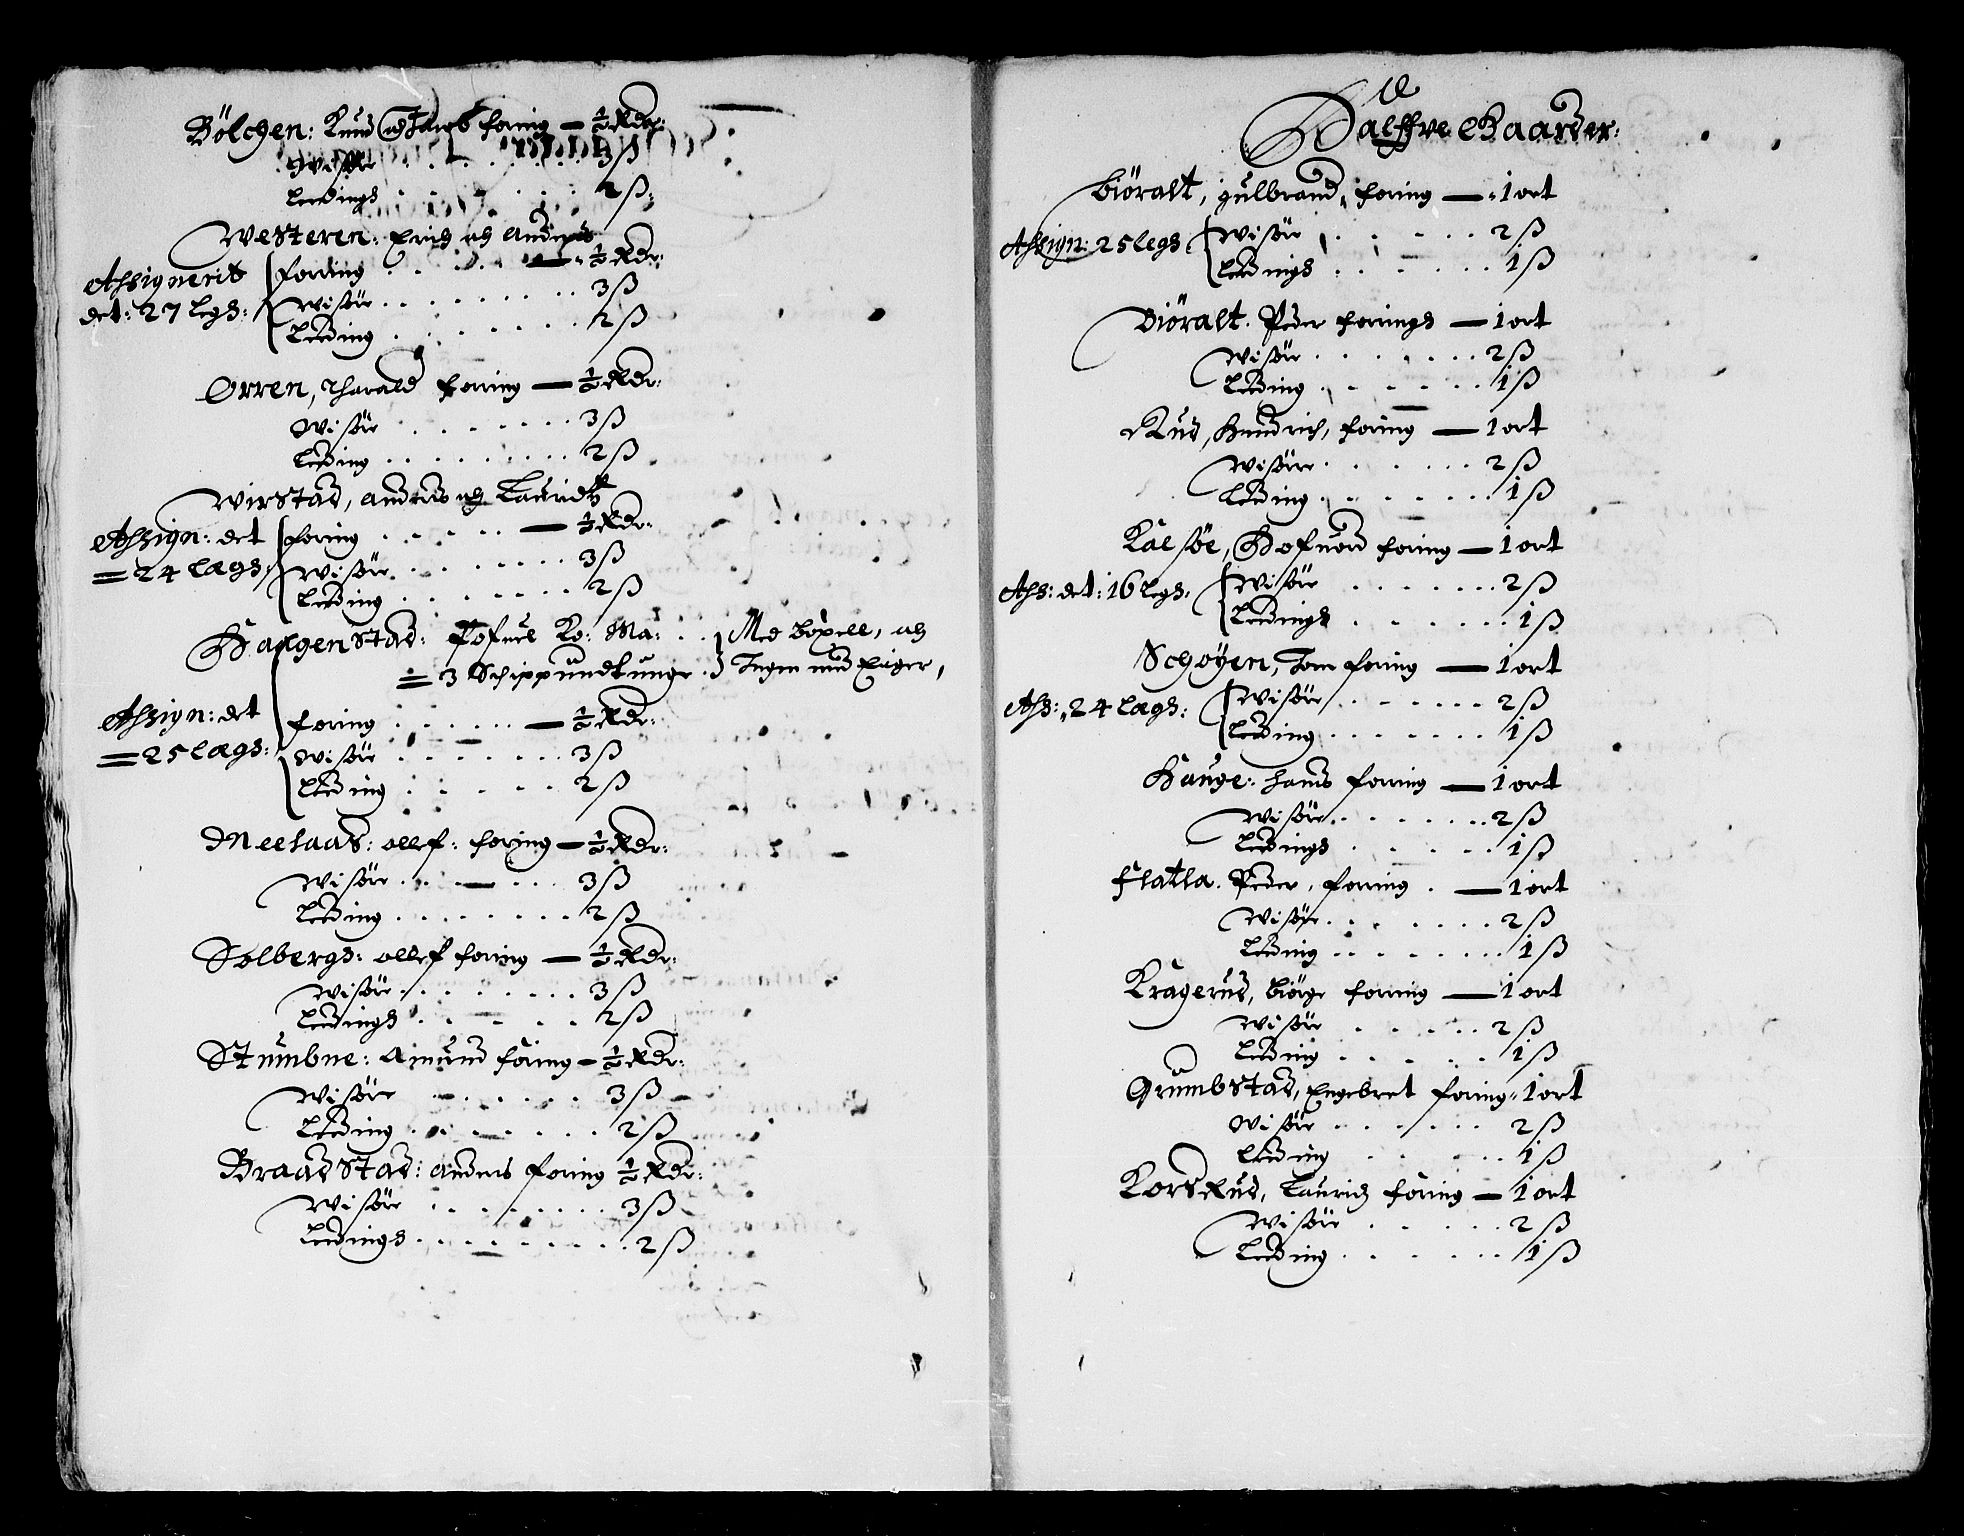 Bölchen: Knud og Jacob foring — ½ Rdr:
Wisöre . . . . . . . 3 ß
Ledings . . . . . . 2 ß:
Westeren: Erich og Anders
Assignerit det: 27 legs: forring . . . . — ½ Rdr:
Wisöre . . . . . . . . 3 ß
Leding . . . . . . . 2 ß
Orren, Tharald forring — ½ Rdr:
Wisöre . . . . . . . 3 ß
Leding . . . . . . . . 2 ß
Wirstad, Anders og Lauridtz
Assign: det = 24 lægs: foring . . . . . — ½ Rdr:
Wisöre . . . . . . . 3 ß
Leding . . . . . . . 2 ß
Haagenstad: Ko: Ma: . . Med böxell, og
= 3 Schippundtunge . Ingen und Eiger,
Assign: det = 25 lægs: foring . . . . . — ½ Rdr:
Wisöre . . . . . . . 3 ß
Leding . . . . . 2 ß
Meelaas: ollef: foring — ½ Rdr:
Wisöre . . . . . . 3 ß
Leding . . . . . . . . 2 ß
Solbergs: ollef foring — ½ Rdr:
Wisöre . . . . . . . . 3 ß
Ledings . . . . . . 2 ß
Stumbne: Amund foring — ½ Rdr:
Wisöre . . . . . . 3 ß
Leding . . . . . . . 2 ß
Braadstad: anders foring ½ Rdr:
Wisöre . . . . . . . . 3 ß
Ledings . . . . . . . . . 2 ß
Halffve Gaarder:
Biöralt, gulbrand, foring — 1 ort
Assign: 25 legs: Wisör . . . . . . 2 ß
Ledings . . . . . . . 1 ß
Biöralt. Peder forrings — 1 ort
Wisöre . . . . . . . 2 ß
Leding . . . . . . . 1 ß
Rud, Hendrich, foring — 1 ort
Wisöre . . . . . . . 2 ß
Leding . . . . . . . . 1 ß
Kaelsöe, foring — 1 ort
Ass: det: 16 legs: Wisöre . . . . . . . 2 ß
Ledings . . . . . . . 1 ß
Schoyen, Tore foring — 1 ort
Ass: 24 lægs: Wisöre . . . . . . . 2 ß
Leding . . . . . . . 1 ß
Hauge: Hans forring — 1 ort
Wisöre . . . . . . . 2 ß
Ledings . . . . . . 1 ß
Flatla. Peder, forring . — 1 ort
Wisöre . . . . . . . 2 ß
Leding . . . . . . . . 1 ß
Kragerud, biörge forring — 1 ort
Wisöre . . . . . 2 ß
Leding . . . . . . 1 ß
Grumbstad, Engebret foring - 1 ort
Wisöre . . . . . . 2 ß
Leding . . . . . 1 ß
Korsrud, Lauridz foring — 1 ort
Wisöre . . . . . 2 ß
Leding . . . . . . 1 ß